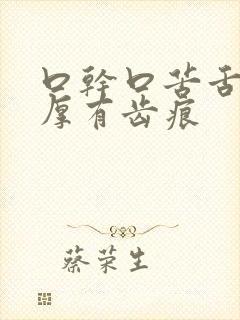 口幹口苦舌
厚有齿痕
蔡荣生